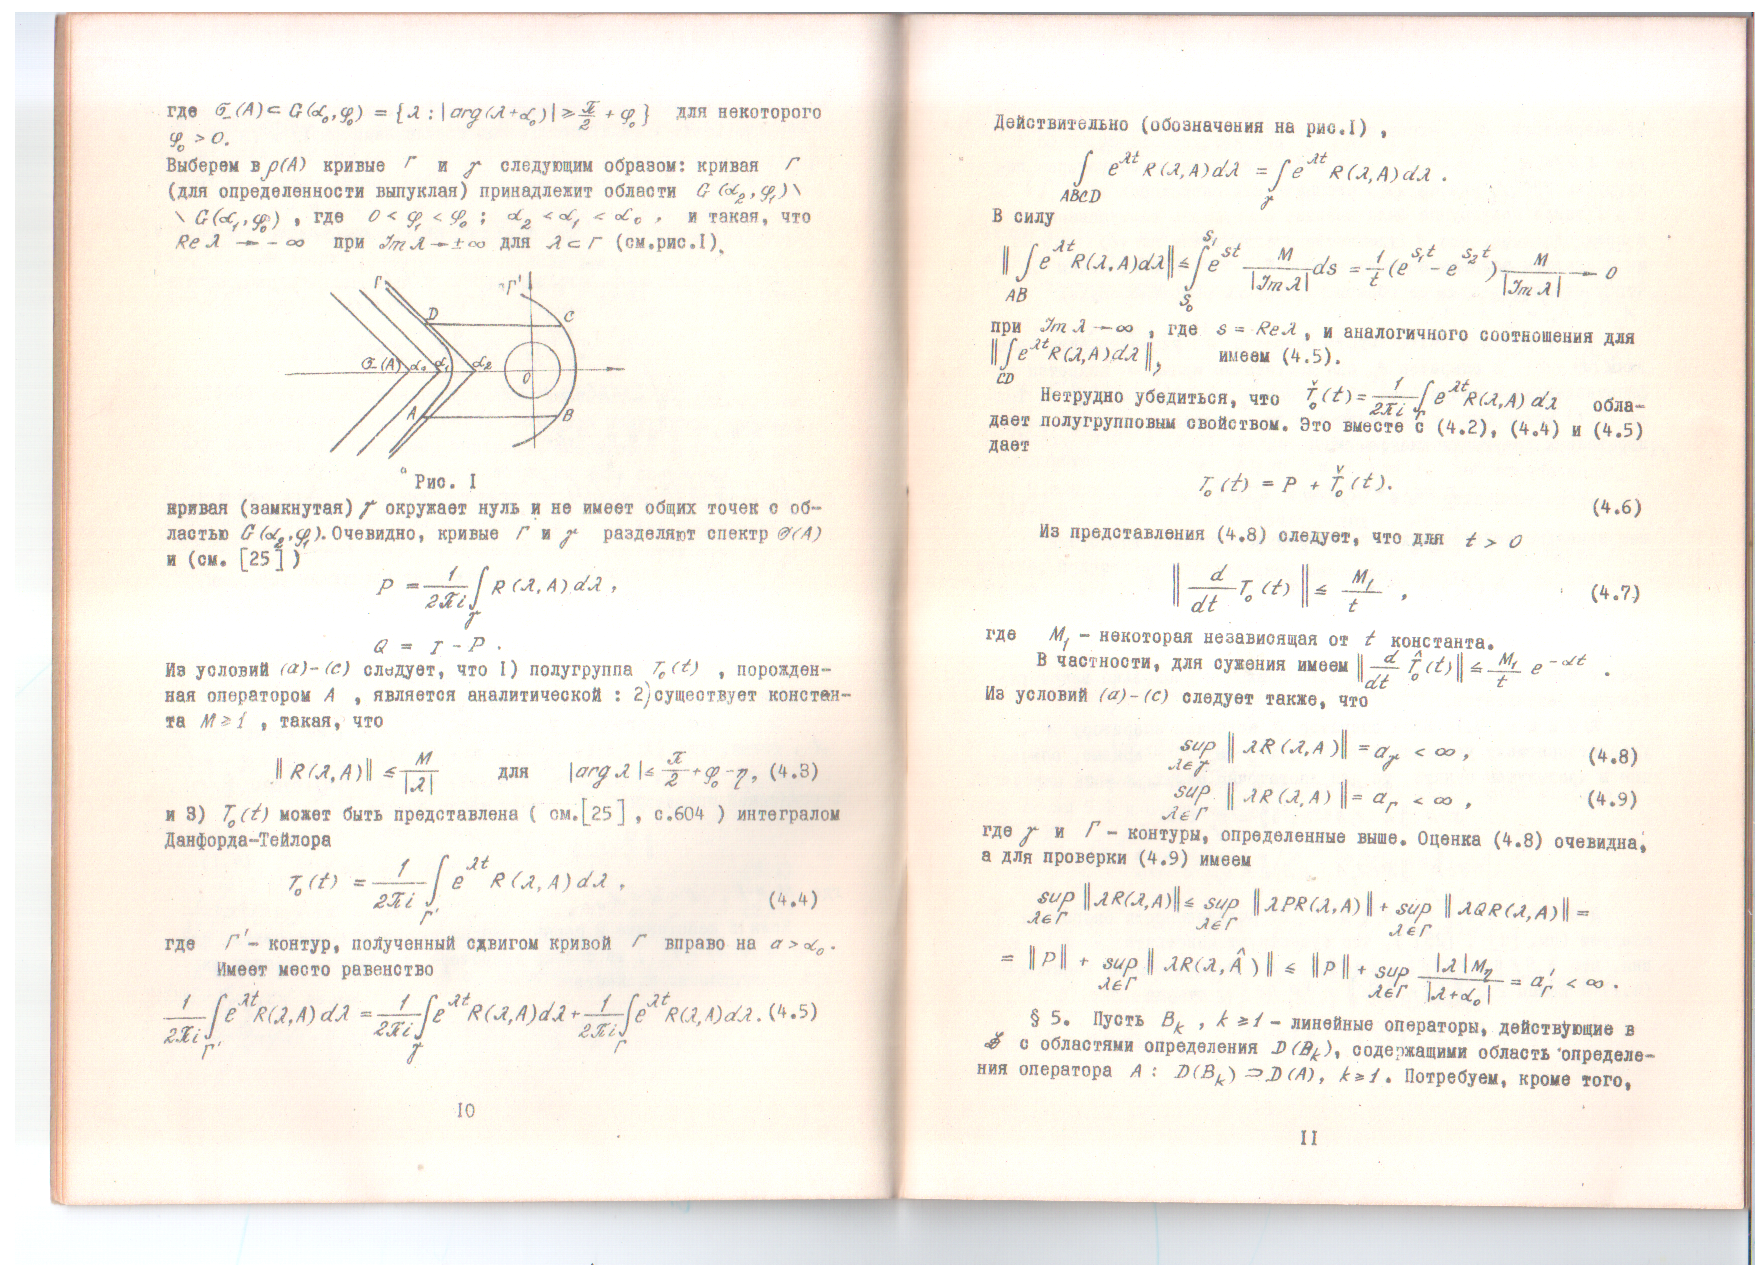 где σ_(A) ⊂ G(α₀,φ₀) = {λ : |arg(λ+α₀)| ≥ π/2 + φ₀} для некоторого
φ₀ > 0.
Выберем в ρ(A) кривые Γ и γ следующим образом: кривая Γ
(для определенности выпуклая) принадлежит области G(α₂,φ₁)\
\ G(α₁,φ₀) , где 0 < φ₁ < φ₀ ; α₂ < α₁ < α₀ , и такая, что
Re λ → - ∞ при Im λ → ± ∞ для λ ⊂ Γ (см.рис.I).
Γ Γ'
D C
σ_(A) α₀ α₁ α₂ 0
A B
Рис. I
кривая (замкнутая) γ окружает нуль и не имеет общих точек с об-
ластью G(α₂,φ₁). Очевидно, кривые Γ и γ разделяют спектр σ(A)
и (см. [25])
P = 1/2πi ∫_γ R(λ,A)dλ ,
Q = I - P .
Из условий (a)-(c) следует, что I) полугруппа T₀(t) , порожден-
ная оператором A , является аналитической : 2) существует констан-
та M ≥ 1 , такая, что
‖R(λ,A)‖ ≤ M/|λ| для |arg λ| ≤ π/2 + φ₀ - η, (4.3)
и 3) T₀(t) может быть представлена ( см.[25] , с.604 ) интегралом
Данфорда-Тейлора
T₀(t) = 1/2πi ∫_Γ' e^{λt} R(λ,A)dλ , (4.4)
где Γ' - контур, полученный сдвигом кривой Γ вправо на a > α₀ .
Имеет место равенство
1/2πi ∫_Γ' e^{λt} R(λ,A)dλ = 1/2πi ∫_γ e^{λt} R(λ,A)dλ + 1/2πi ∫_Γ e^{λt} R(λ,A)dλ. (4.5)
10
Действительно (обозначения на рис.I) ,
∫_ABCD e^{λt} R(λ,A)dλ = ∫_γ e^{λt} R(λ,A)dλ .
В силу
‖∫_AB e^{λt} R(λ,A)dλ‖ ≤ ∫_{s₀}^{s₁} e^{st} M/|Im λ| ds = 1/t (e^{s₁t} - e^{s₂t}) M/|Im λ| → 0
при Im λ → ∞ , где s = Re λ , и аналогичного соотношения для
‖∫_CD e^{λt} R(λ,A)dλ‖, имеем (4.5).
Нетрудно убедиться, что Ť₀(t) = 1/2πi ∫_Γ e^{λt} R(λ,A)dλ обла-
дает полугрупповым свойством. Это вместе с (4.2), (4.4) и (4.5)
дает
T₀(t) = P + Ť₀(t).
(4.6)
Из представления (4.8) следует, что для t > 0
‖d/dt T₀(t)‖ ≤ M₁/t , (4.7)
где M₁ - некоторая независящая от t константа.
В частности, для сужения имеем ‖d/dt T̂₀(t)‖ ≤ M₁/t e^{-αt} .
Из условий (a)-(c) следует также, что
sup_{λ∈γ} ‖λR(λ,A)‖ = a_γ < ∞ , (4.8)
sup_{λ∈Γ} ‖λR(λ,A)‖ = a_Γ < ∞ , (4.9)
где γ и Γ - контуры, определенные выше. Оценка (4.8) очевидна,
а для проверки (4.9) имеем
sup_{λ∈Γ} ‖λR(λ,A)‖ ≤ sup_{λ∈Γ} ‖λPR(λ,A)‖ + sup_{λ∈Γ} ‖λQR(λ,A)‖ =
= ‖P‖ + sup_{λ∈Γ} ‖λR(λ,Â)‖ ≤ ‖P‖ + sup_{λ∈Γ} |λ|M_η/|λ+α₀| = a'_Γ < ∞ .
§ 5. Пусть B_k , k ≥ 1 - линейные операторы, действующие в
с областями определения D(B_k), содержащими область определе-
ния оператора A : D(B_k) ⊃ D(A), k ≥ 1. Потребуем, кроме того,
11